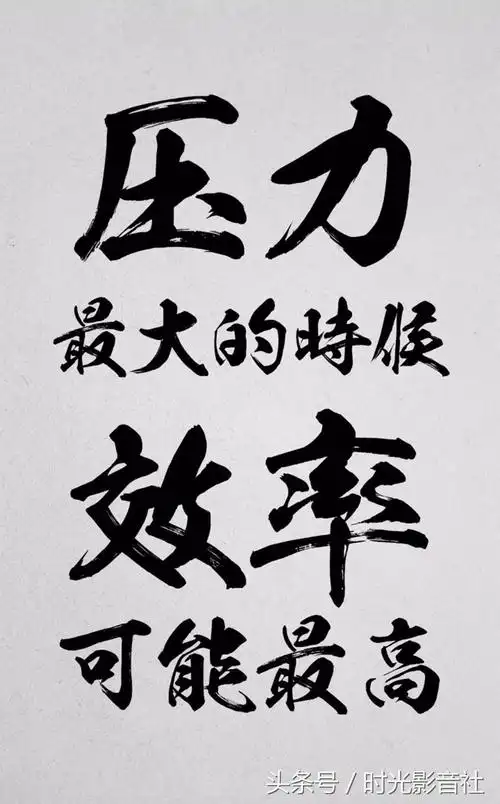 压力
最大的時候
效率
可能最高
头条号/时光影音社